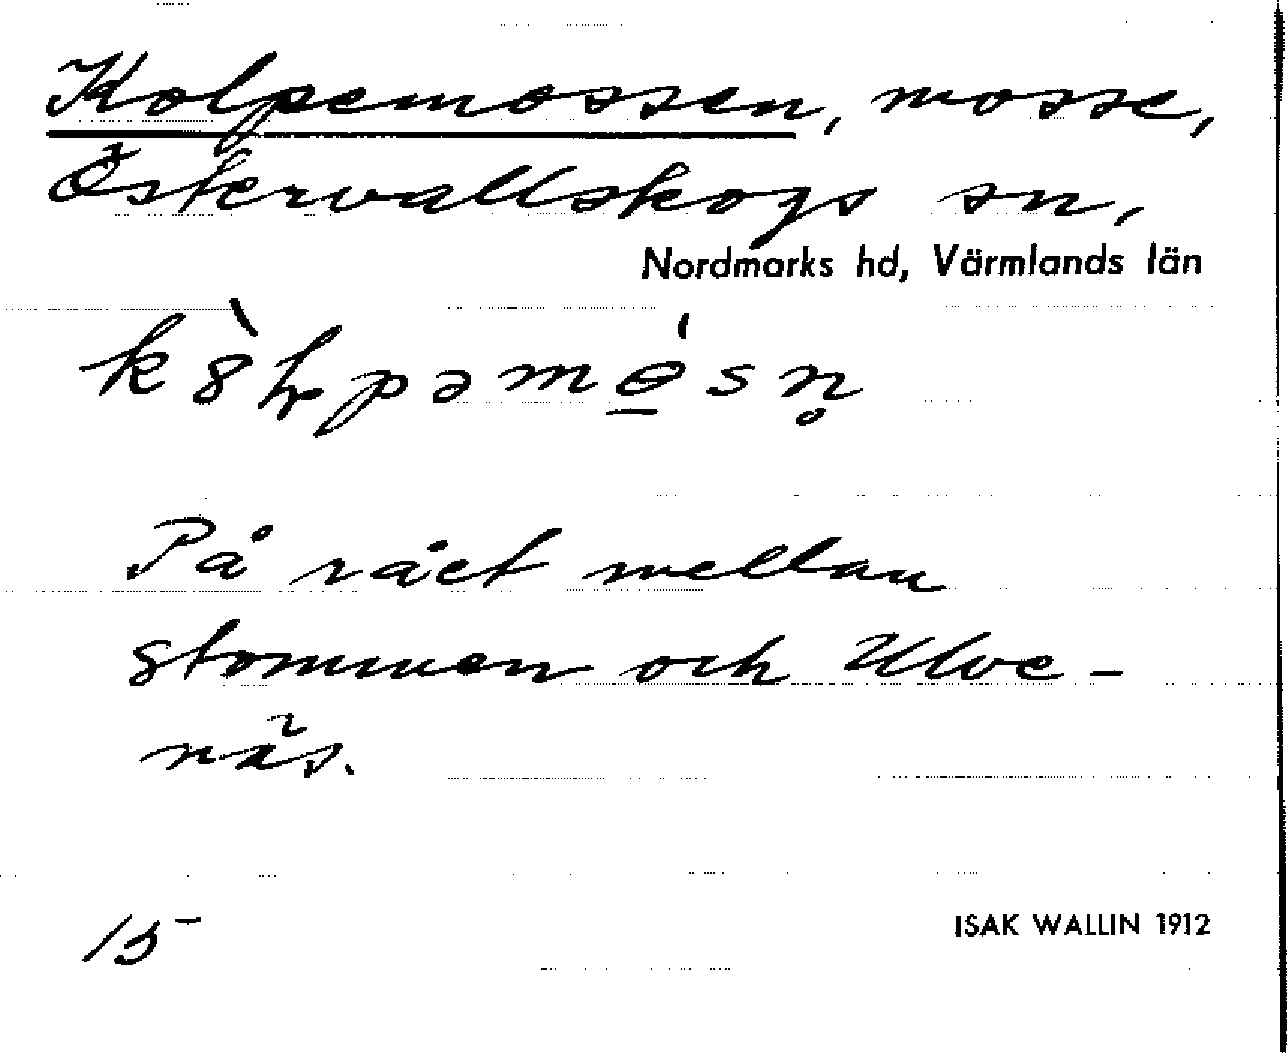 Kolpemossen, mosse,
Östervallskogs sn,
Nordmarks hd, Värmlands län
På rået mellan
stommen och Ulve-
näs.
15
ISAK WALLIN 1912